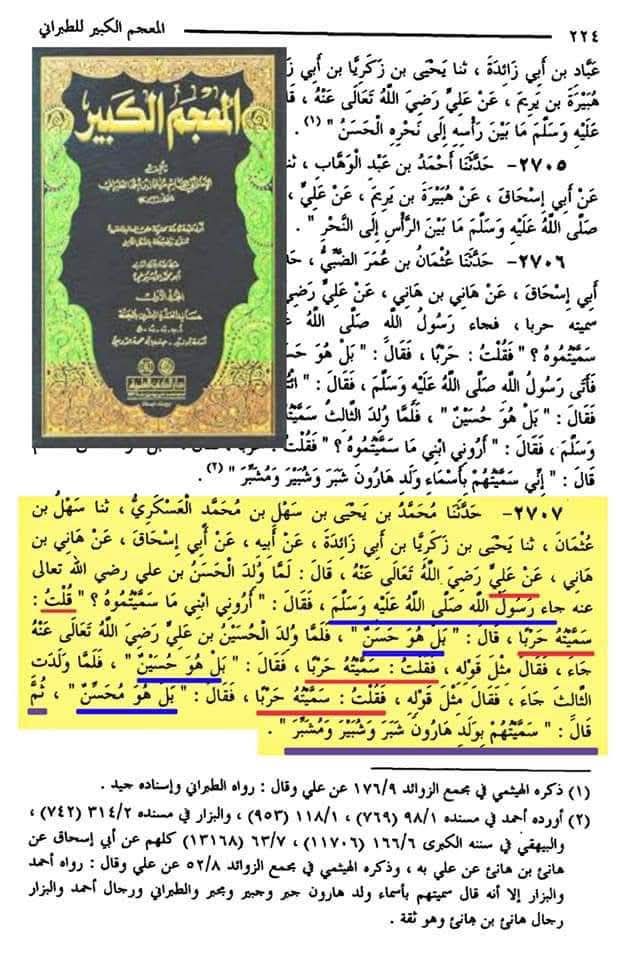 ٢٢٤
المعجم الكبير للطبراني
عَبَّاد بن أَبي زَائِدَةَ ، ثنا يَحْيَى بن زَكَرِيَّا بن أَبي
هُبَيْرَةَ بن يَرِيمَ ، عَنْ عَلِيٍّ رَضِيَ اللَّهُ تَعَالَى عَنْهُ ،
عَلَيْهِ وَسَلَّمَ مَا بَيْنَ رَأْسِهِ إِلَى نَحْرِهِ الْحَسَنُ " (١) .
٢٧٠٥- حَدَّثَنَا أَحْمَدُ بن عَبْدِ الْوَهَّاب ،
عَنْ أَبِي إِسْحَاقَ ، عَنْ هُبَيْرَةَ بن يَرِيمَ ، عَنْ عَلِيٍّ ،
صَلَّى اللَّهُ عَلَيْهِ وَسَلَّمَ مَا بَيْنَ الرَّأْسِ إِلَى النَّحْرِ " .
٢٧٠٦- حَدَّثَنَا عُثْمَانُ بن عُمَرَ الضَّبِّيُّ ،
أَبِي إِسْحَاقَ ، عَنْ هَانِي بن هَانِي ، عَنْ عَلِيٍّ
سميته حربا ، فجاء رَسُولُ اللَّهِ صَلَّى اللَّهُ
سَمَّيْتُمُوهُ ؟ " فَقُلْتُ : حَرْبًا ، فَقَالَ : " بَلْ هُوَ
فَأَتَى رَسُولُ اللَّهِ صَلَّى اللَّهُ عَلَيْهِ وَسَلَّمَ ، فَقَالَ : "
فَقَالَ : " بَلْ هُوَ حُسَيْنٌ " ، فَلَمَّا وُلِدَ الثَّالِثُ
وَسَلَّمَ ، فَقَالَ : " أَرُونِي ابْنِي مَا سَمَّيْتُمُوهُ ؟ "
قَالَ : " إِنِّي سَمَّيْتُهُمْ بِأَسْمَاءِ وَلَدِ هَارُونَ شَبَرَ وَشُبَيْرَ وَمُشَبِّرَ " (٢) .
المعجم الكبير
٢٧٠٧- حَدَّثَنَا مُحَمَّدُ بن يَحْيَى بن سَهْلِ بن مُحَمَّدِ الْعَسْكَرِيُّ ، ثنا سَهْلُ بن
عُثْمَانَ ، ثنا يَحْيَى بن زَكَرِيَّا بن أَبِي زَائِدَةَ ، عَنْ أَبِيهِ ، عَنْ أَبِي إِسْحَاقَ ، عَنْ هَانِي بن
هَانِي ، عَنْ عَلِيٍّ رَضِيَ اللَّهُ تَعَالَى عَنْهُ ، قَالَ : لَمَّا وُلِدَ الْحَسَنُ بن علي رضي الله تعالى
عنه جاء رَسُولُ اللَّهِ صَلَّى اللَّهُ عَلَيْهِ وَسَلَّمَ ، فَقَالَ : " أَرُونِي ابْنِي مَا سَمَّيْتُمُوهُ ؟ " قُلْتُ :
سَمَّيْتُهُ حَرْبًا ، قَالَ : " بَلْ هُوَ حَسَنٌ " ، فَلَمَّا وُلِدَ الْحُسَيْنُ بن عَلِيٍّ رَضِيَ اللَّهُ تَعَالَى عَنْهُ
جَاءَ ، فَقَالَ مِثْلَ قَوْلِهِ ، فَقُلْتُ : سَمَّيْتُهُ حَرْبًا ، فَقَالَ : " بَلْ هُوَ حُسَيْنٌ " ، فَلَمَّا وَلَدَتِ
الثَّالِثَ جَاءَ ، فَقَالَ مِثْلَ قَوْلِهِ ، فَقُلْتُ : سَمَّيْتُهُ حَرْبًا ، فَقَالَ : " بَلْ هُوَ مُحَسِّنٌ " ، ثُمَّ
قَالَ : " سَمَّيْتُهُمْ بِوَلَدِ هَارُونَ شَبَرَ وَشُبَيْرَ وَمُشَبِّرَ " .
(١) ذكره الهيثمي في مجمع الزوائد ١٧٦/٩ عن علي وقال : رواه الطبراني وإسناده جيد .
(٢) أورده أحمد في مسنده ٩٨/١ (٧٦٩) ، ١١٨/١ (٩٥٣) ، والبزار في مسنده ٣١٤/٢ (٧٤٢) ،
والبيهقي في سننه الكبرى ١٦٦/٦ (١١٧٠٦) ، ٦٣/٧ (١٣١٦٨) كلهم عن أبي إسحاق عن
هانئ بن هانئ عن علي به ، وذكره الهيثمي في مجمع الزوائد ٥٢/٨ عن علي وقال : رواه أحمد
والبزار إلا أنه قال سميتهم بأسماء ولد هارون جبر وجبير ومجبر والطبراني ورجال أحمد والبزار
رجال هانئ بن هانئ وهو ثقة .